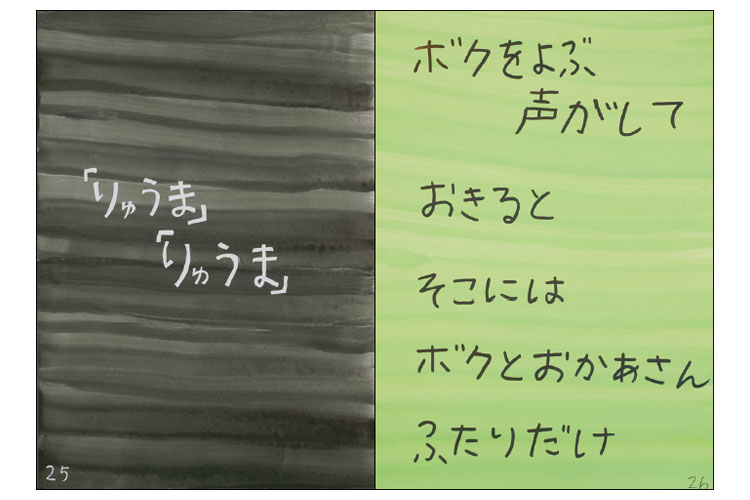 「りゅうま」
「りゅうま」
25
ボクをよぶ
声がして
おきると
そこには
ボクとおかあさん
ふたりだけ
26